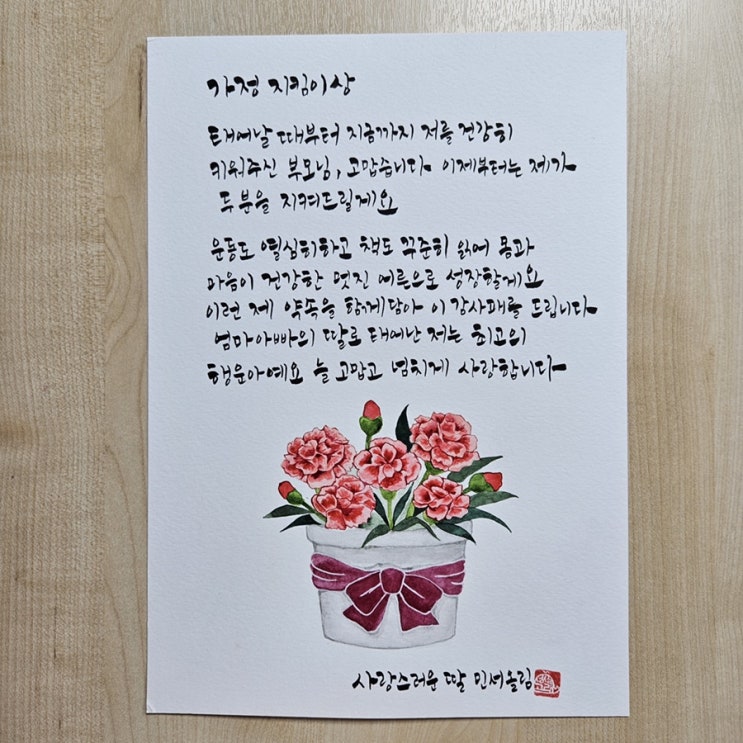 가정 지킴이상
태어날 때부터 지금까지 저를 건강히
키워주신 부모님, 고맙습니다 이제부터는 제가
두 분을 지켜드릴게요
운동도 열심히하고 책도 꾸준히 읽어 몸과
마음이 건강한 멋진 어른으로 성장할게요
이런 제 약속을 함께담아 이 감사패를 드립니다
엄마아빠의 딸로 태어난 저는 최고의
행운아예요 늘 고맙고 넘치게 사랑합니다
사랑스러운 딸 민서올림